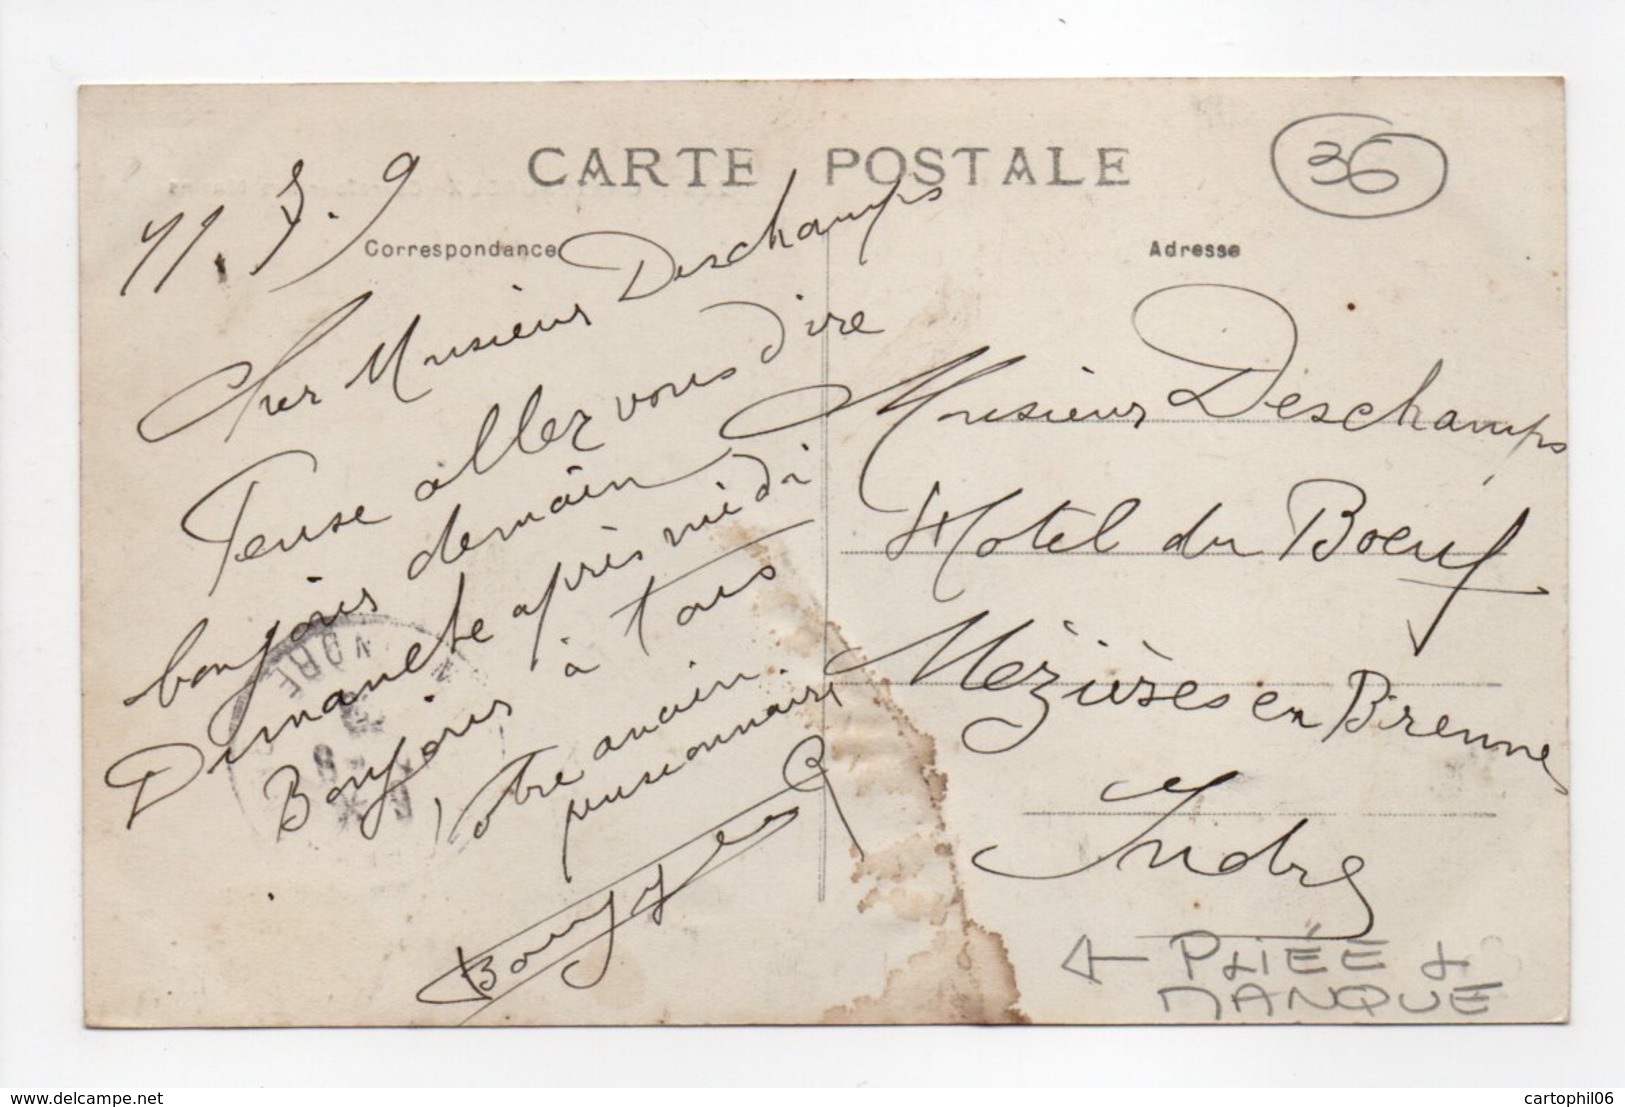 CARTE POSTALE
36
11. 7. 9
Correspondance
Adresse
Cher Monsieur Deschamps
Pense aller vous dire
bonjour demain
Dimanche après midi
Bonjour à tous
Votre ancien
pensionnaire
Monsieur Deschamps
Hotel du Boeuf
Mézières en Brenne
Indre
← PLIÉE +
MANQUE
delcampe.net
cartophil06